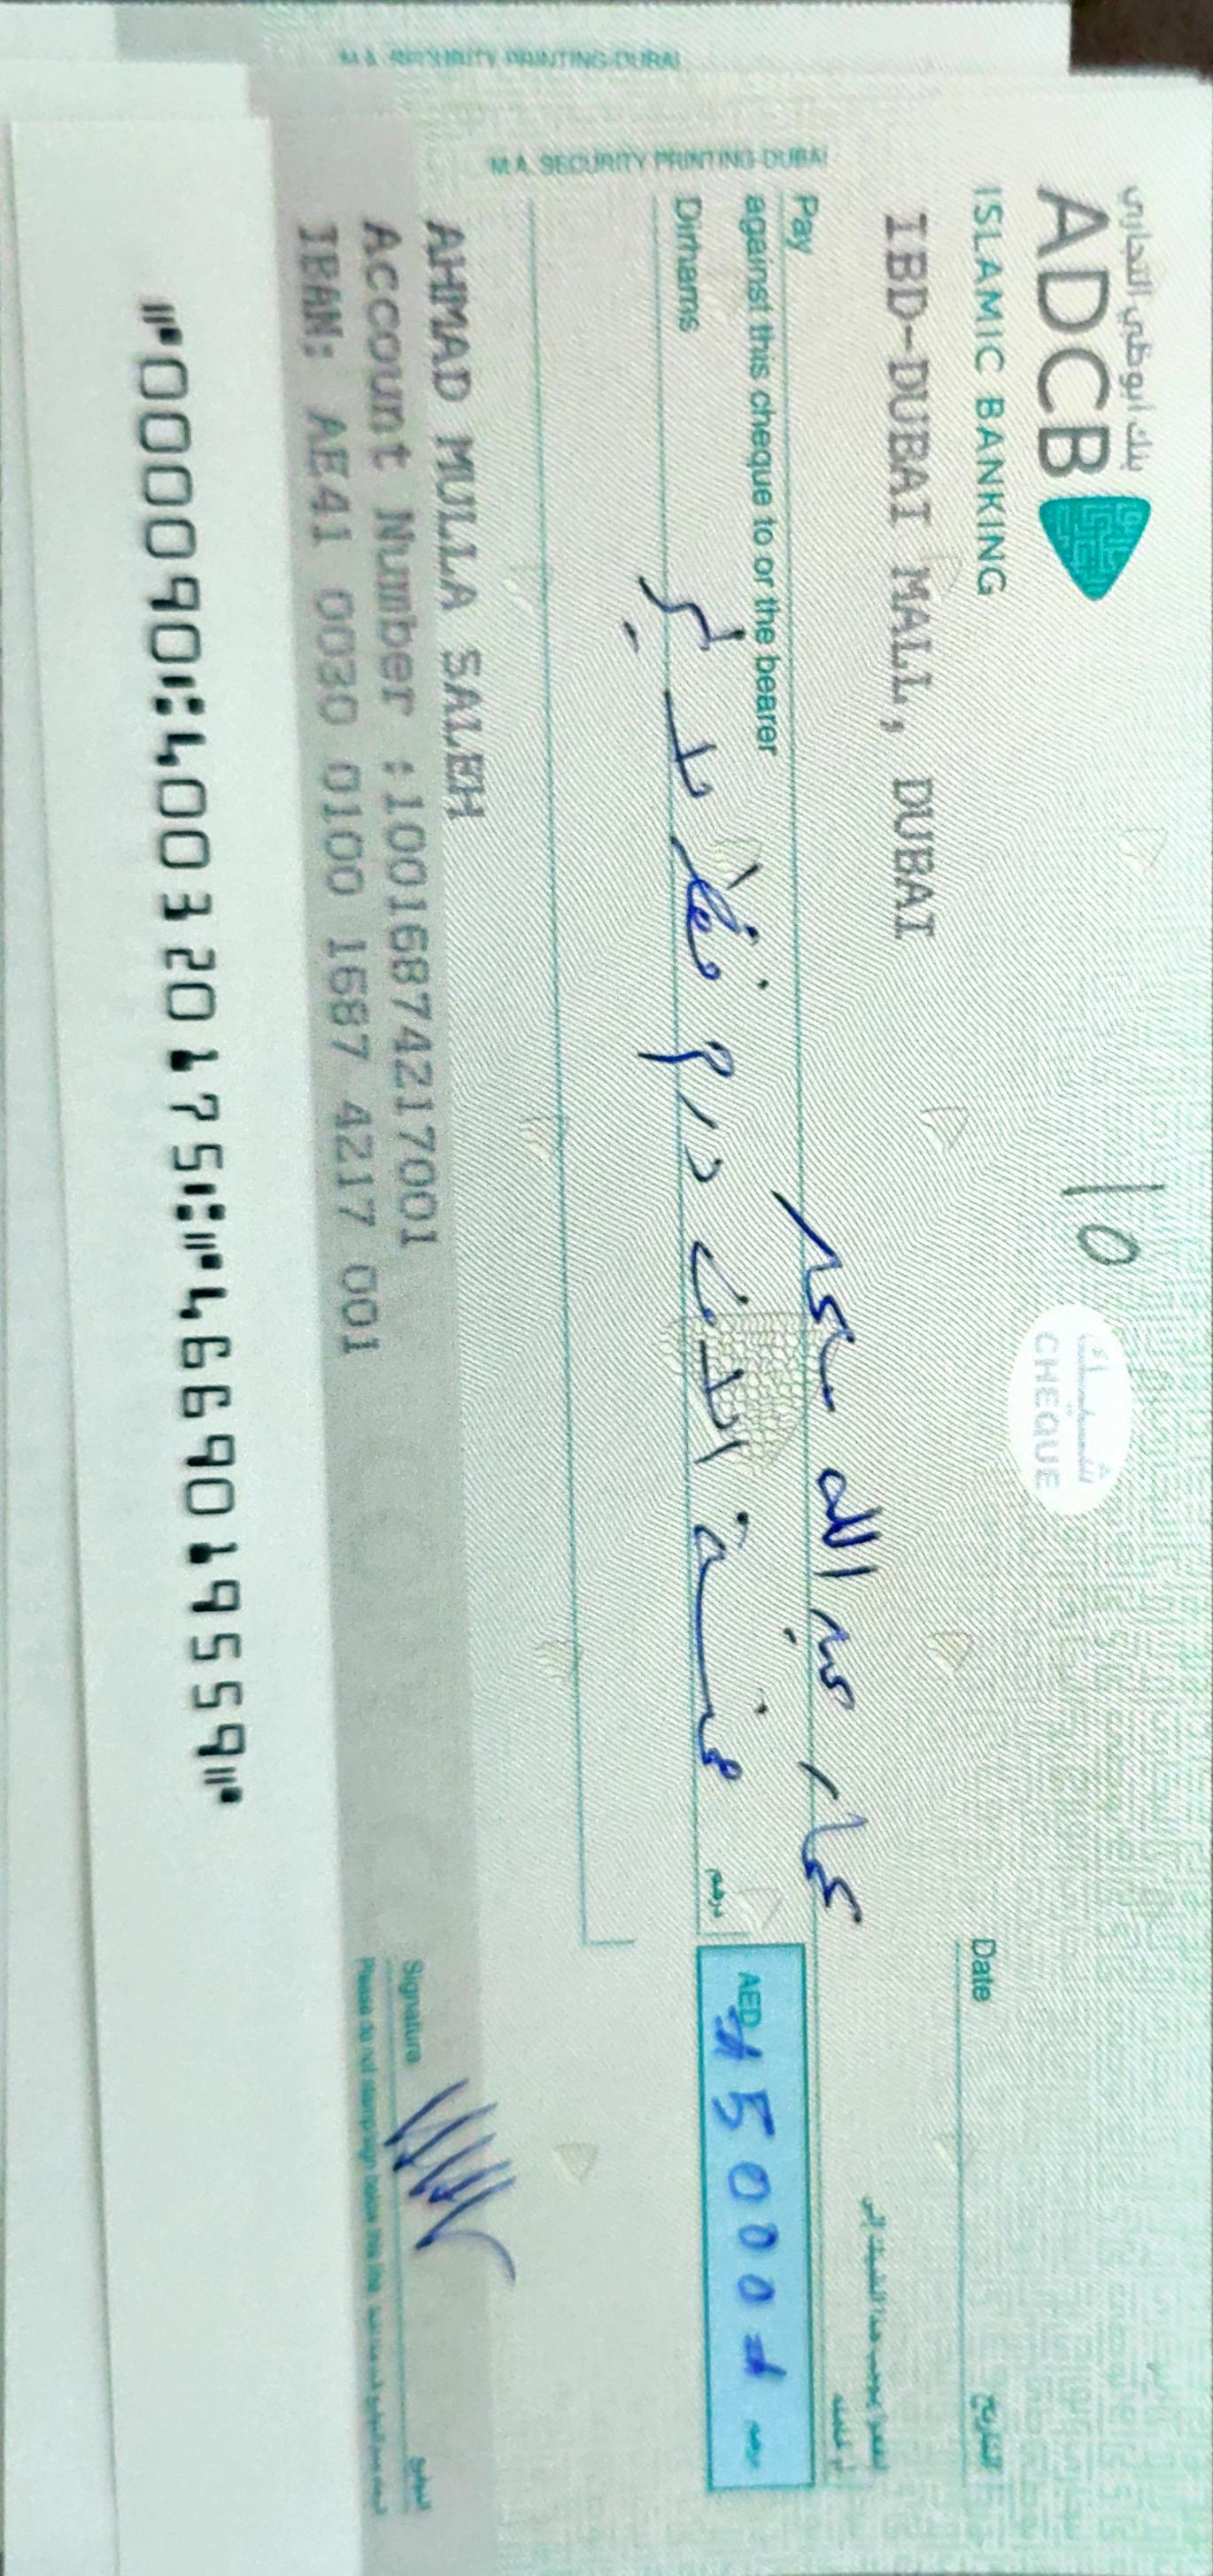 M.A. SECURITY PRINTING-DUBAI
M.A. SECURITY PRINTING-DUBAI
بنك أبوظبي التجاري
ADCB
ISLAMIC BANKING
10
شيك
CHEQUE
IBD-DUBAI MALL, DUBAI
Date
التاريخ
Pay
against this cheque to or the bearer
عمار عبد الله
ادفعوا بموجب هذا الشيك إلى
أو لحامله
Dirhams
خمسة الاف درهم فقط لا غير
درهم
AED
# 5000 #
درهم
AHMAD MULLA SALEH
Account Number :10016874217001
IBAN: AE41 0030 0100 1687 4217 001
Signature
التوقيع
Please do not stamp/sign below this line
⑈000090⑆400320175⑆⑈4669019559⑈